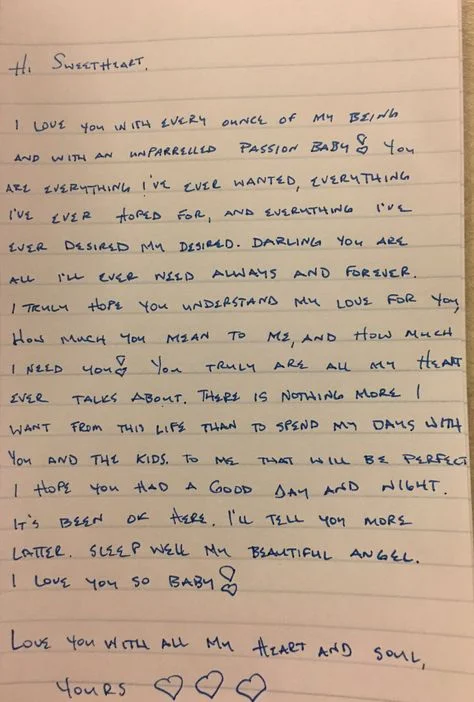 Hi Sweetheart.
I love you with every ounce of my being
and with an unparrelled passion baby! You
are everything I've ever wanted, everything
I've ever hoped for, and everything I've
ever desired my desired. Darling you are
all I'll ever need always and forever.
I truly hope you understand my love for you,
how much you mean to me, and how much
I need you! You truly are all my heart
ever talks about. There is nothing more I
want from this life than to spend my days with
you and the kids. To me that will be perfect
I hope you had a good day and night.
It's been ok here. I'll tell you more
latter. Sleep well my beautiful angel.
I love you so baby!
Love you with all my heart and soul,
Yours ♡♡♡